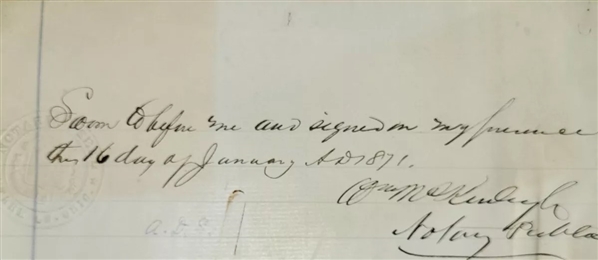 Sworn to before me and signed in my presence
this 16 day of January A.D 1871.
Wm McKinley Jr
Notary Public
A.D.S.